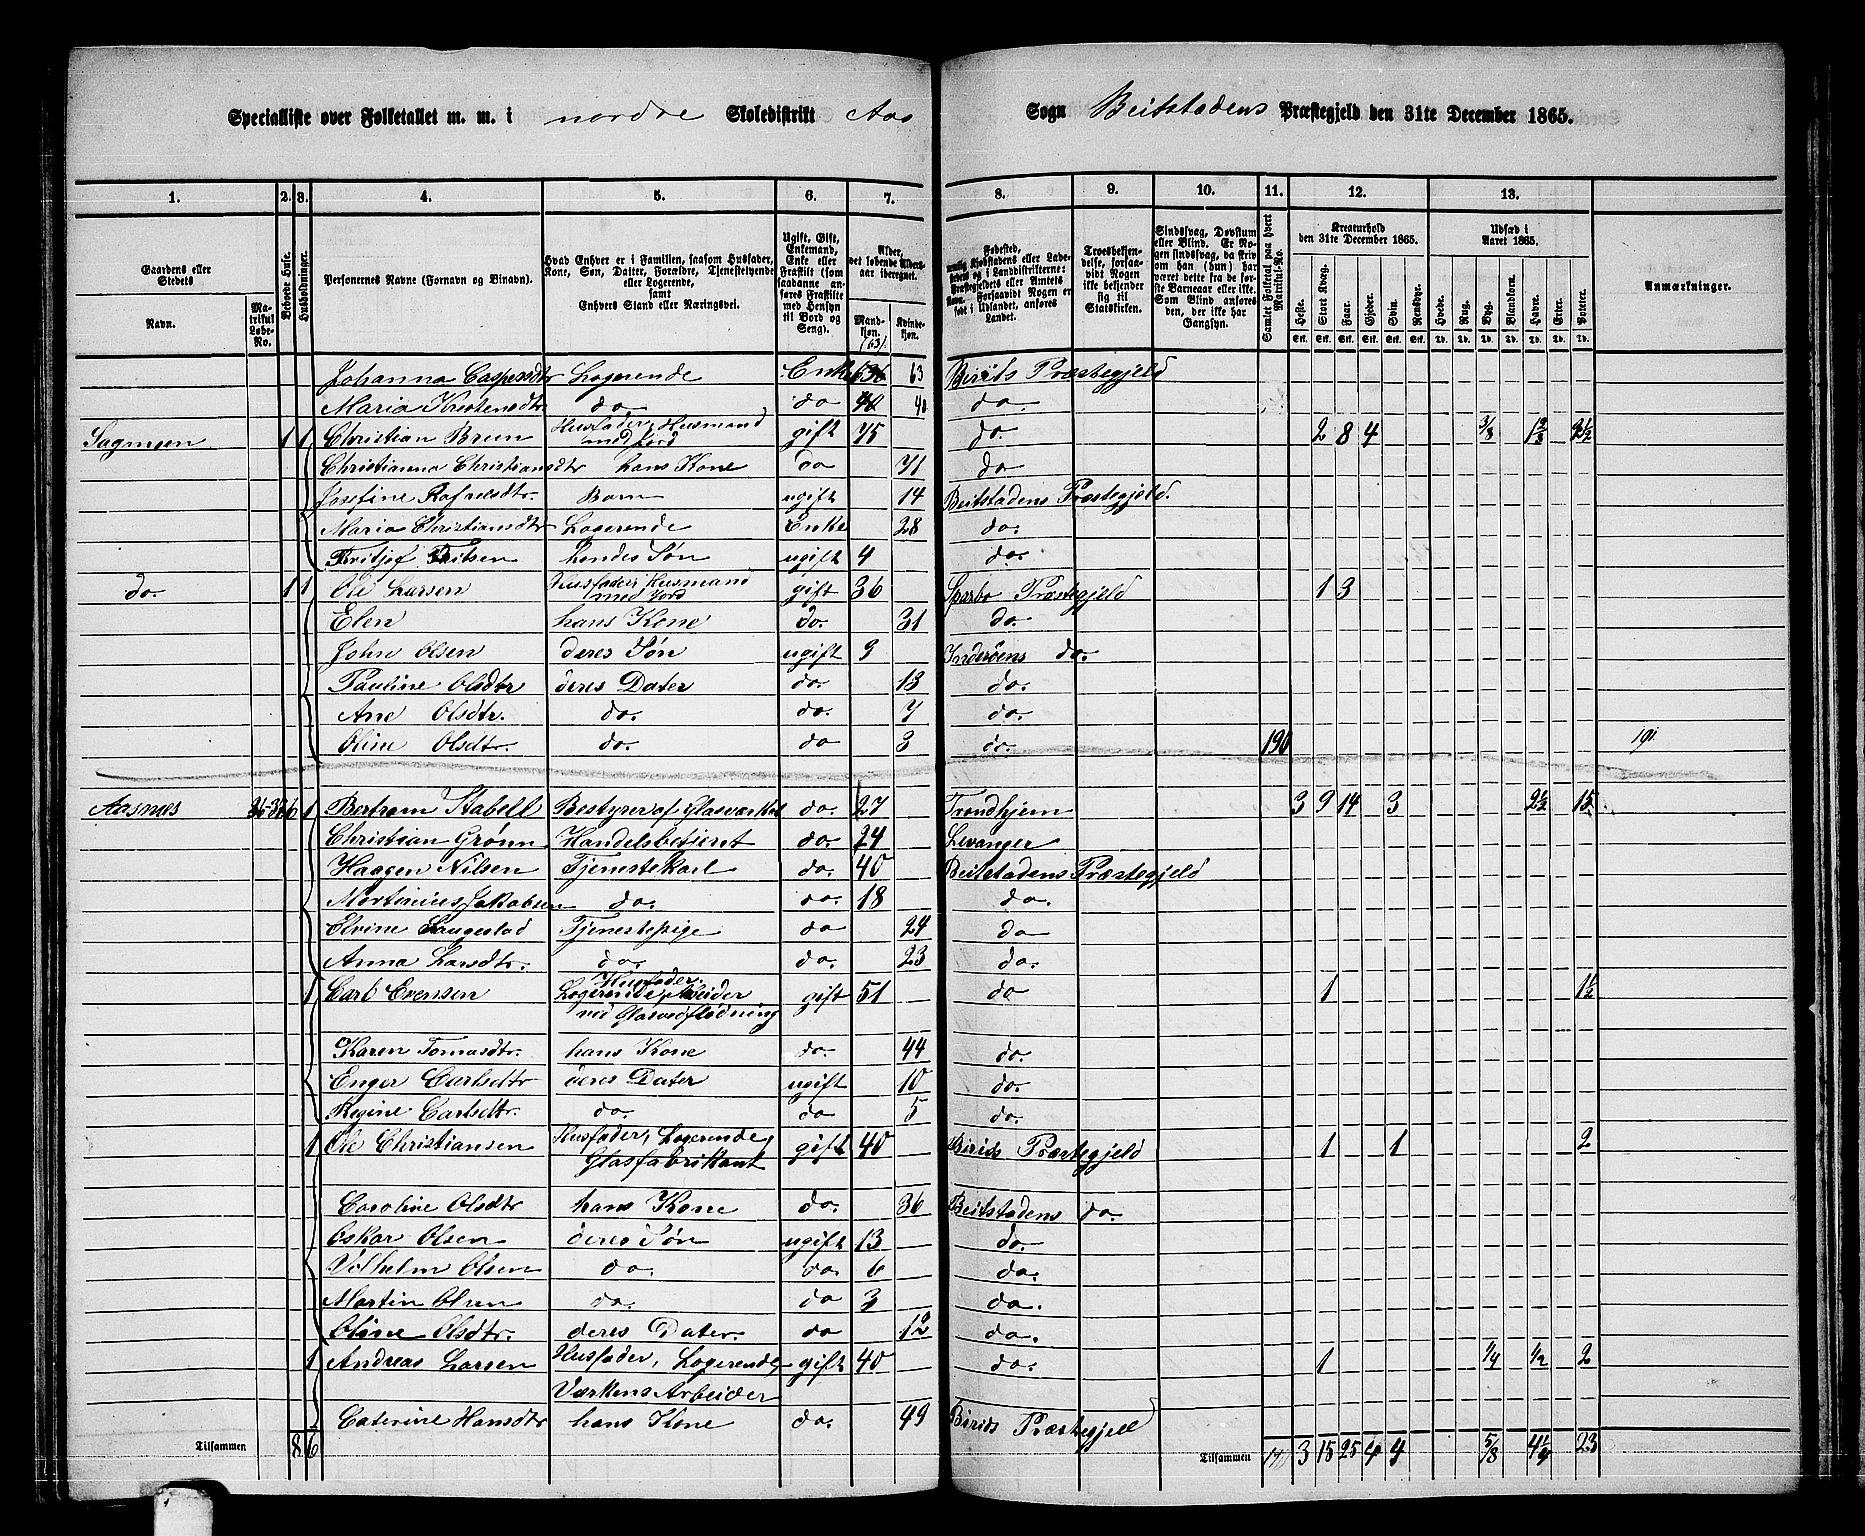 Specialliste over Folketallet m. m. i nordre Skoledistrikt Aas Sogn Beitstadens Præstegjeld den 31te December 1865.
1. 2. 3. 4. 5. 6. 7. 8. 9. 10. 11. 12. 13.
Gaardens eller Stedets Navn. Matrikul Løbe-No. Beboede Huse. Husholdninger. Personernes Navne (Fornavn og Binavn). Hvad Enhver er i Familien, saasom Husfader, Kone, Søn, Datter, Forældre, Tjenestetyende eller Logerende, samt Enhvers Stand eller Næringsvei. Ugift, Gift, Enkemand, Enke eller Fraskilt (saadanne anføres Fraskilte med Hensyn til Bord og Seng). Alder, det løbende Aldersaar iberegnet. Mandkjøn. Kvindekjøn. Troesbekjendelse, forsaavidt Nogen ikke bekjender sig til Statskirken. Samlet Folketal paa hvert Matrikul-No. Kreaturhold den 31te December 1865. Heste. Stort Kvæg. Faar. Gjeder. Svin. Rensdyr. Udsæd i Aaret 1865. Hvede. Rug. Byg. Blandkorn. Havre. Erter. Poteter. Anmærkninger.
Johanna Caspersdtr Logerende Enke 63 Birids Præstegjeld
Maria Kristensdtr do. do 40 do.
Sagmoen 1 1 Christian Brun Husfader, Husmand med Jord gift 75 do. 2 8 4 3/8 1 2/3 2 1/2
Christianna Christiansdtr hans Kone do 71 do
Josefine Rafaelsdtr. Barn ugift 14 Beitstadens Præstegjeld.
Maria Christiansdtr Logerende Enke 28 do.
Fritjof Fritsen hendes Søn ugift 4 do.
do. 1 1 Ole Larsen Husfader Husmand med Jord gift 36 Sparbo Præstegjeld 1 3
Elen hans Kone do. 31 do.
John Olsen deres Søn ugift 9 Inderöens do.
Pauline Olsdtr deres Dater do. 13 do.
Ane Olsdtr. do. do. 7 do.
Oline Olsdtr. do. do 3 do. 190 191.
Aasnæs 6 1 Bertram Stabell Bestyrer af Glasværket do. 27 Trondhjem 3 9 14 3 2 1/2 15
Christian Grønn Handelsbetient do. 24 Levanger
Haagen Nilsen Tjenestekarl do. 40 Beitstadens Præstegjeld
Mortinius Jakobsen do. do. 18 do.
Elvine Haugestad Tjenestepige do 24 do
Anna Larsdtr. do. do. 23 do.
1 Carl Evensen Husfader Logerende, Arbeider ved Glasvedflødning gift 51 do 1 1 1/2
Karen Tomasdtr. hans Kone do. 44 do.
Enger Carlsdtr deres Dater ugift 10 do.
Regine Carlsdtr. do. do 5 do.
1 Ole Christiansen Husfader, Logerende, Glasfabrikant gift 40 Birids Præstegjeld 1 1 2
Caroline Olsdtr hans Kone do. 36 Beitstadens do.
Oskar Olsen deres Søn ugift 13 do.
Vilhelm Olsen do. do. 6 do.
Martin Olsen do. do 3 do.
Oline Olsdtr. deres Dater. do 12 do.
1 Andreas Larsen Husfader, Logerende, gift 40 do. 1 1/4 1/2 2
Værkens Arbeider
Caterine Hansdtr hans Kone do. 49 Birids Præstegjeld
Tilsammen 8 6 Tilsammen 3 15 25 4 4 5/8 4 1/4 23